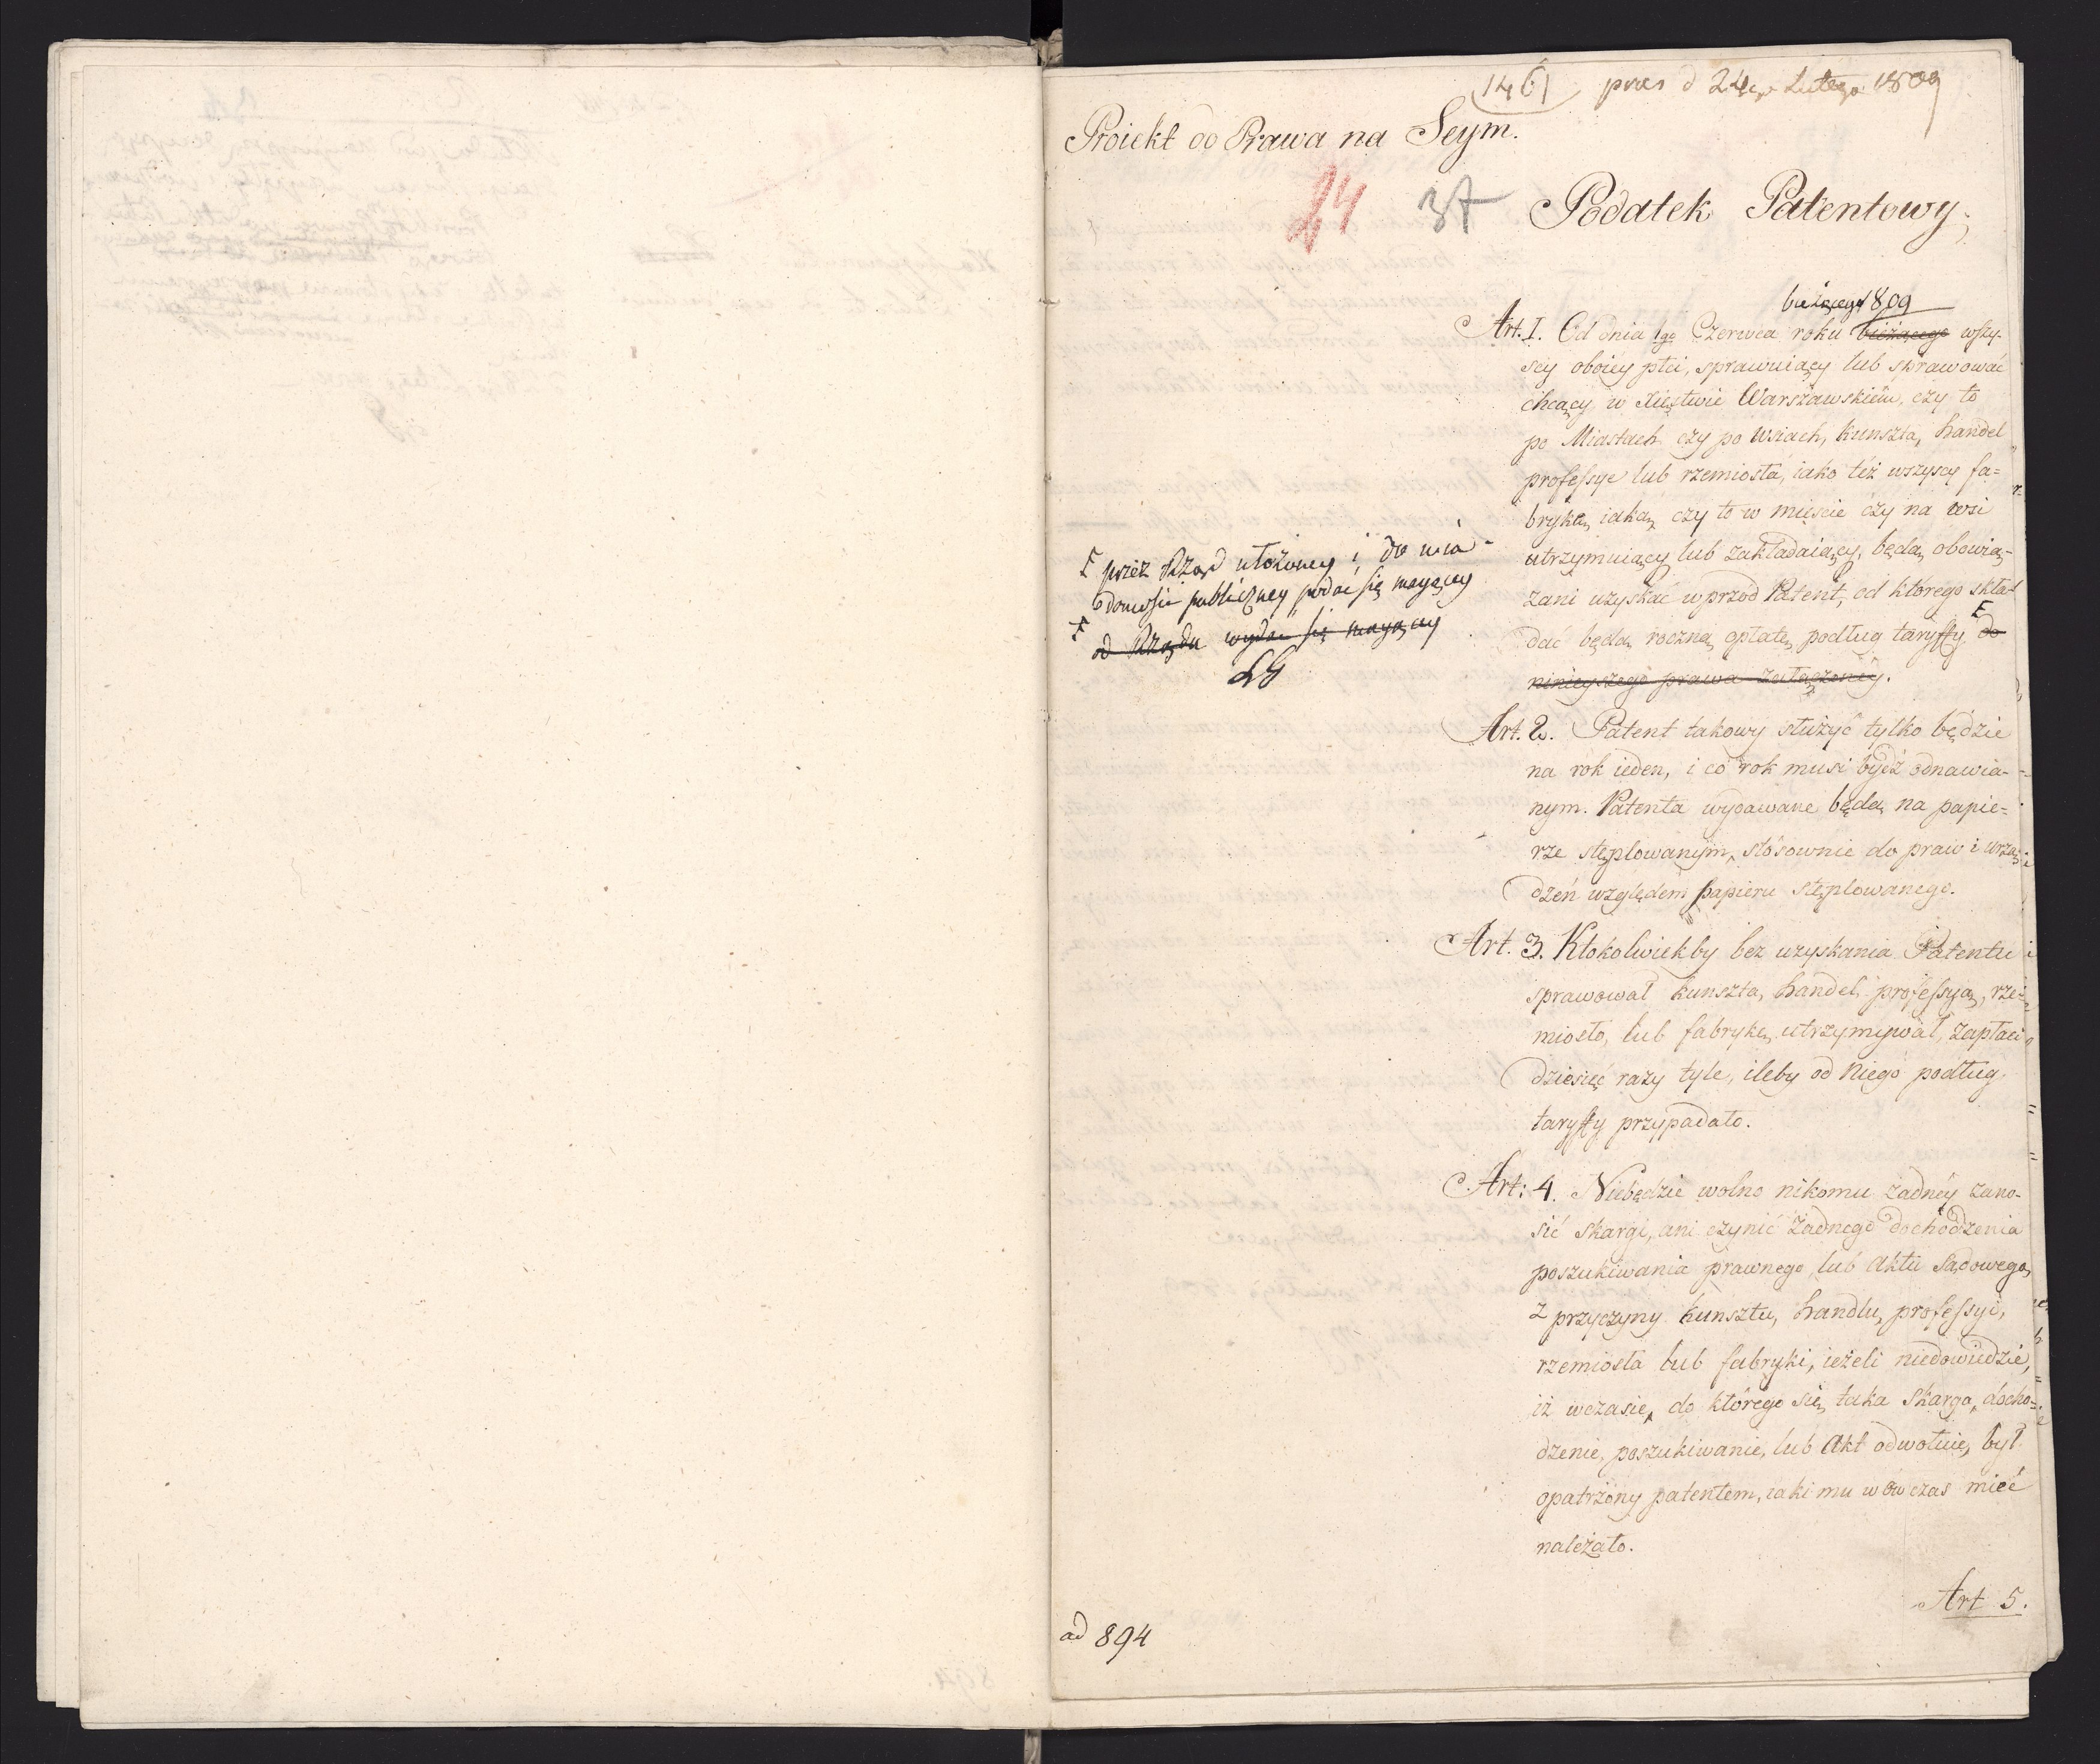 1461 præs d 24go Lutego 1809
Proiekt do Prawa na Seym.
24 37
Podatek Patentowy.
bieżącego 1809
Art. I. Od dnia 1go Czerwca roku bieżącego wszy-
scy oboiey płci, sprawuiący lub sprawować
chcący w Xięstwie Warszawskiém, czy to
po Miastach czy po Wsiach, kunszta, handel
professye lub rzemiosła, iako też wszyscy fa=
brykę iaką czy to w mieście czy na wsi
utrzymuiący lub zakładaiący, będą obowią-
zani uzyskać wprzód Patent, od którego skła-
dać będą roczną opłatę, podług taryffy F do
ninieyszego prawa załączoney.
F przez Rząd ułożoney i do wia-
domości publiczney podać się maiącey
F od Rządu wydać się maiącey
Art. 2. Patent takowy służyć tylko będzie
na rok ieden, i co rok musi bydź odnawia-
nym. Patenta wydawane będą na papie=
rze stęplowanym, stósownie do praw i urzą-
dzeń względem papieru stęplowanego.
Art. 3. Ktokolwiekby bez uzyskania Patentu
sprawował kunszta, handel, professyą, rze-
miosło, lub fabrykę utrzymywał, zapłaci
dziesięć razy tyle, ileby od niego podług
taryffy przypadało.
Art: 4. Niebędzie wolno nikomu żadnéy zano-
sić skargi, ani czynić żadnego dochodzenia
poszukiwania prawnego lub Aktu Sądowego,
z przyczyny kunsztu, handlu, professyi,
rzemiosła lub fabryki, ieżeli niedowiedzie,
iż wczasie, do którego się taka skarga, docho=
dzenie, poszukiwanie, lub Akt odwołuie, był
opatrzony patentem, iaki mu wówczas mieć
należało.
Art 5.
ad 894